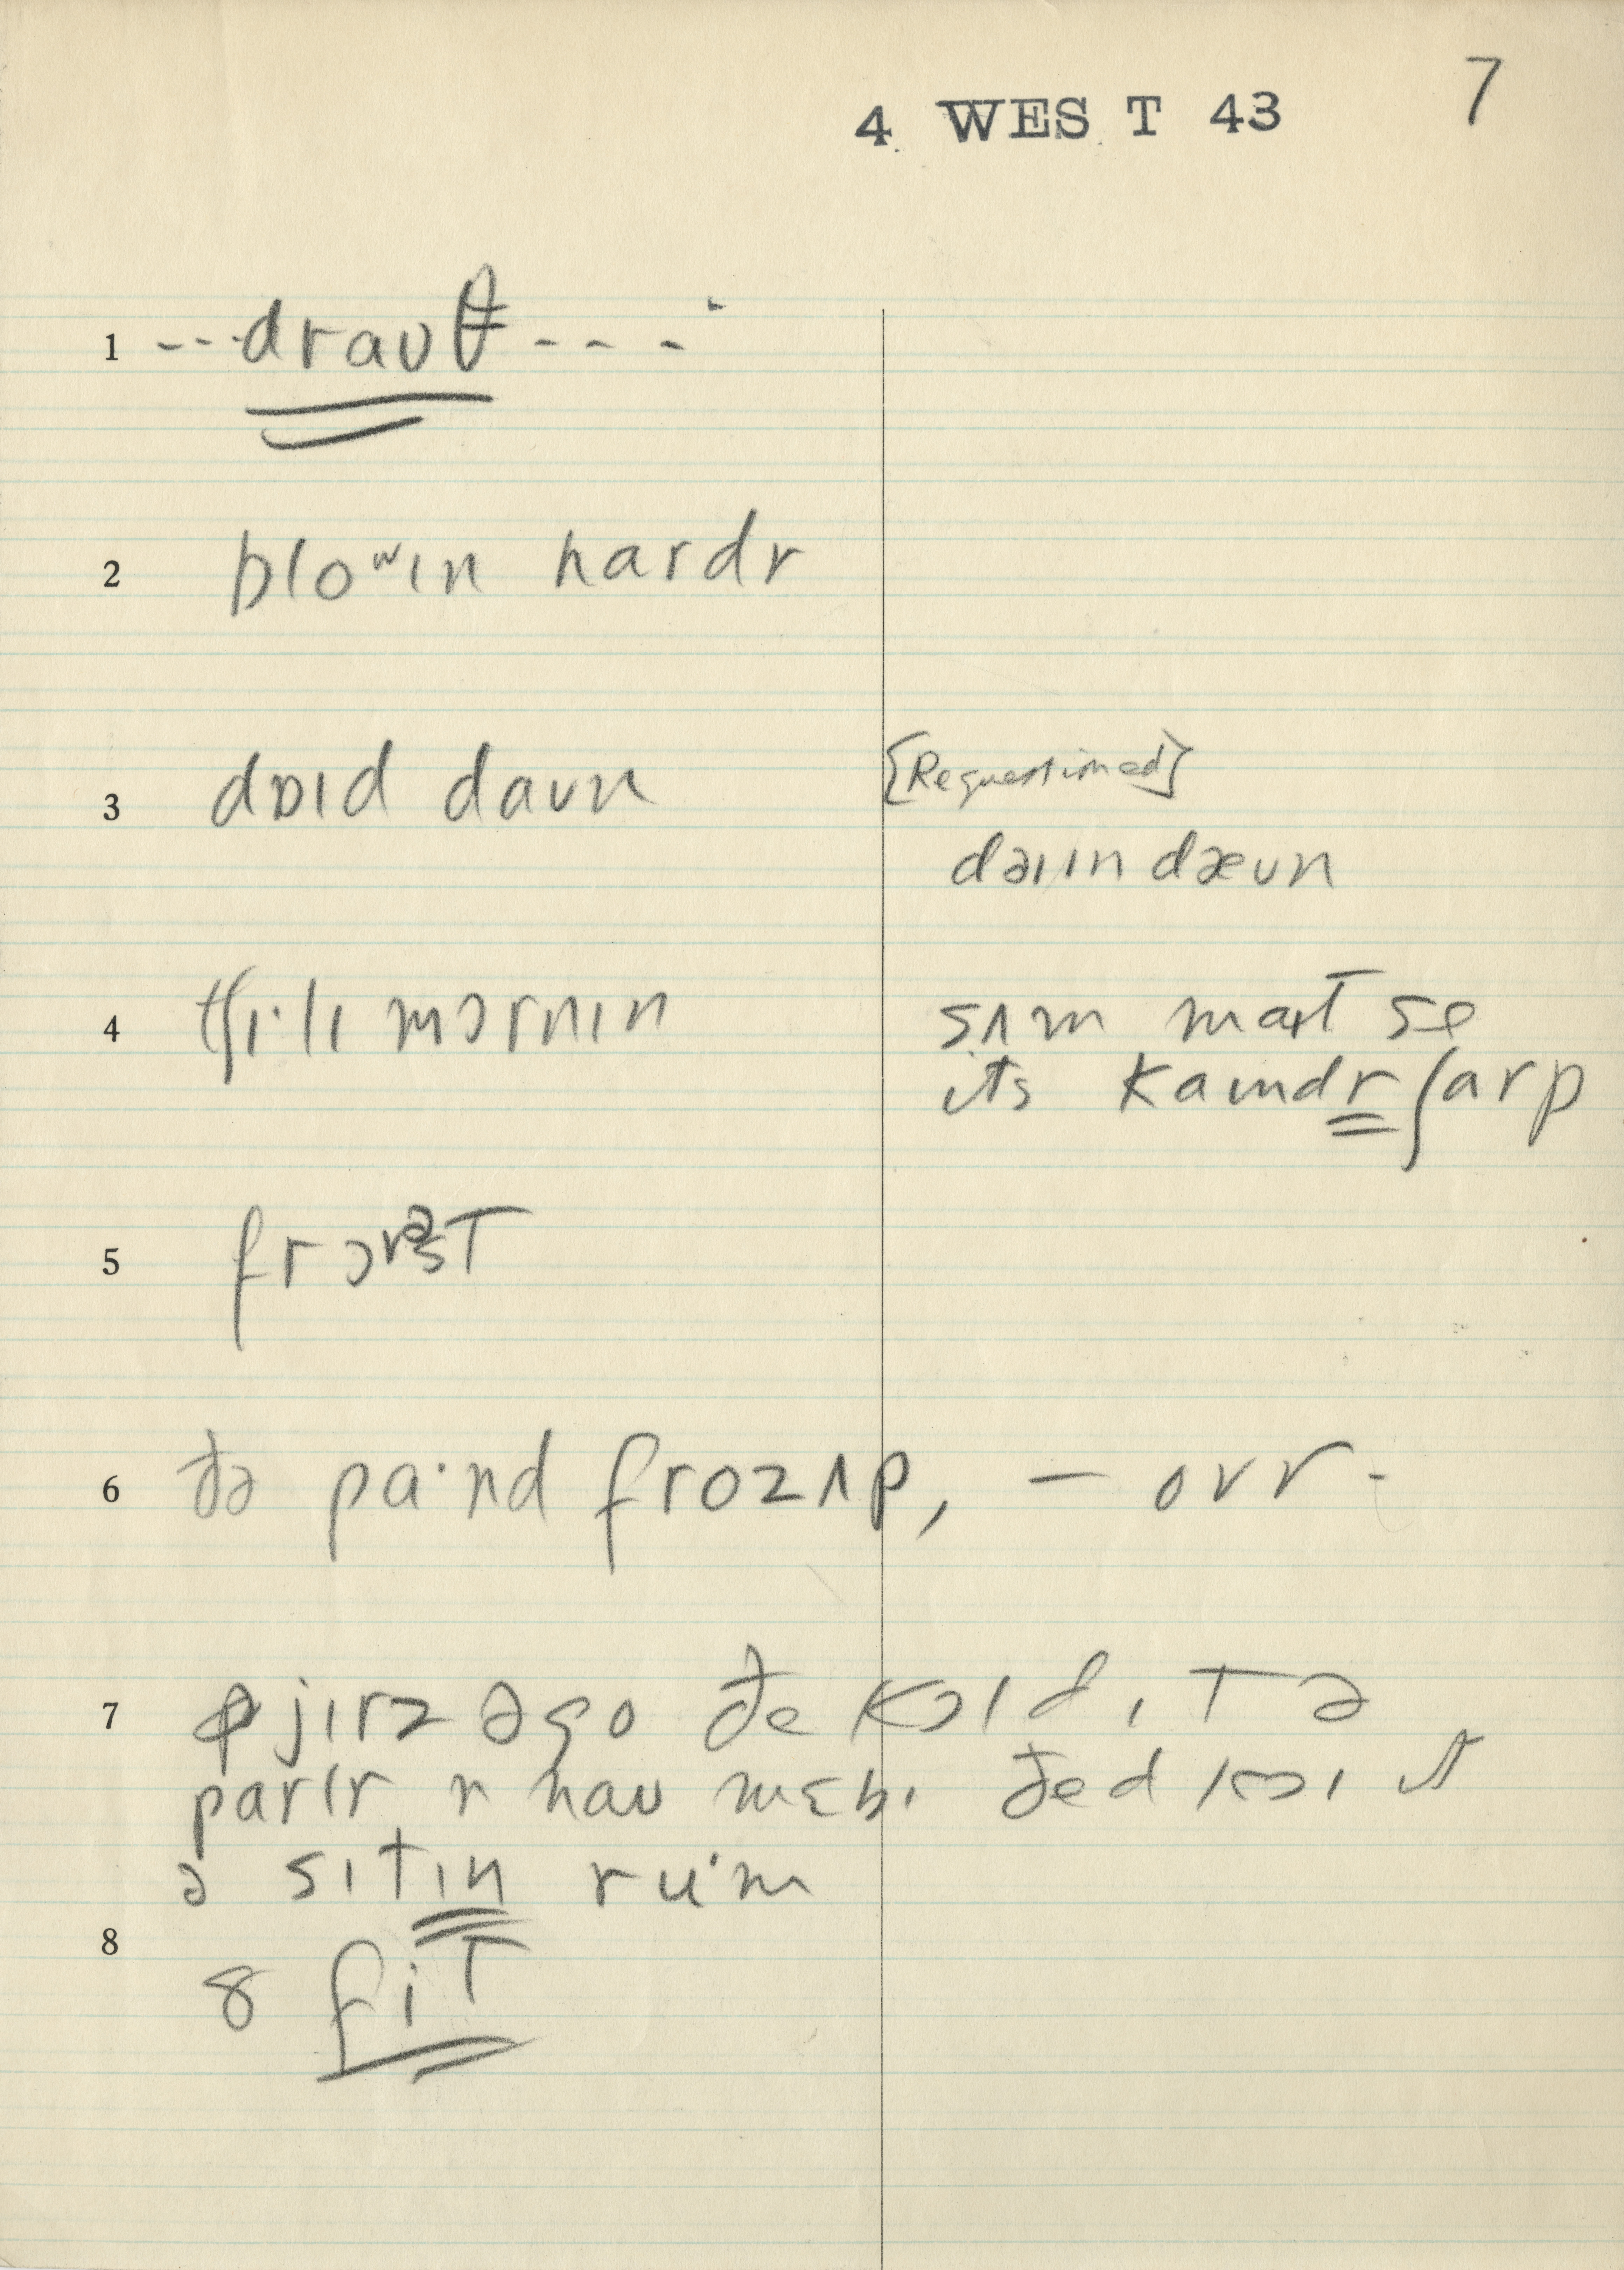 4 WEST 43 7
1 ---draʊθ----
2 bloʷɪn hardr
3 dɒɪd daʊn [Requestioned]
dəɪɪn dæʊn
4 tʃɪ·lɪ mɔrnɪn sʌm maɪt se
its kaɪndr ʃarp
5 frɔst
6 ðə pa·nd frozʌp, — ovr -
7 jɪrz əgo ðe kɔld ɪt ə
parlr n naʊ mɛbɪ ðed kɔl ɪt
ə sɪtɪn ru·m
8
8 fit